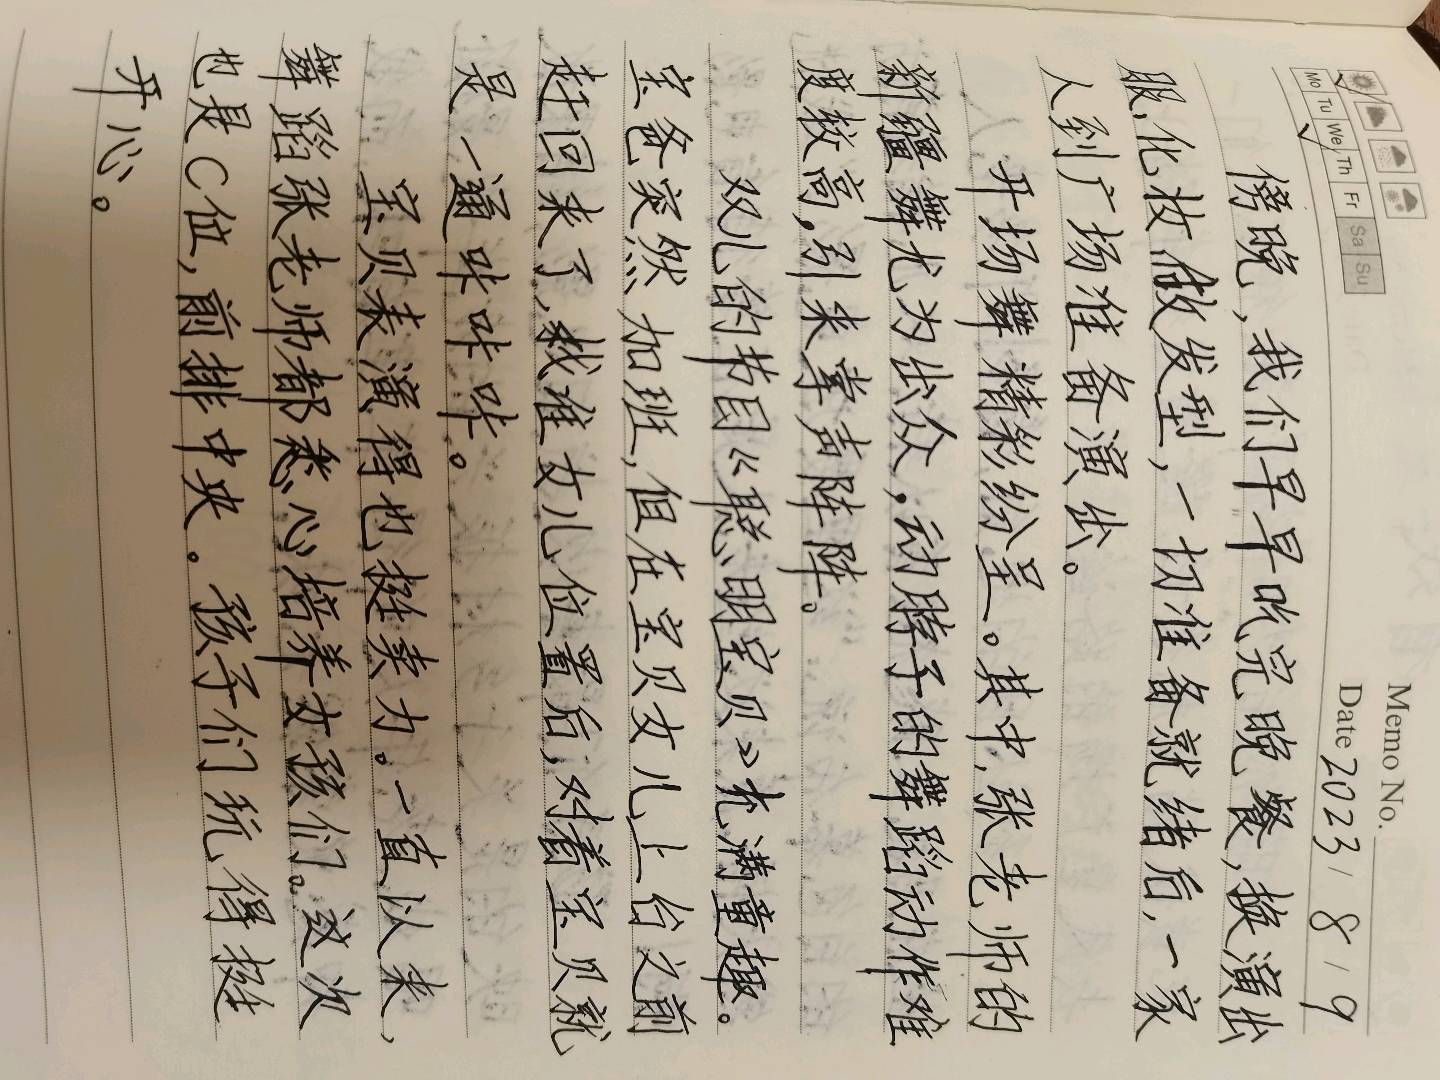 Memo No.
Mo Tu We Th Fr Sa Su
Date 2023 / 8 / 9
傍晚，我们早早吃完晚餐，换演出
服，化妆做发型，一切准备就绪后，一家
人到广场准备演出。
开场舞精彩纷呈。其中，张老师的
新疆舞尤为出众，动脖子的舞蹈动作难
度较高，引来掌声阵阵。
双儿的节目《聪明宝贝》充满童趣。
宝爸突然加班，但在宝贝女儿上台之前
赶回来了，找准女儿位置后，对着宝贝就
是一通咔咔咔。
宝贝表演得也挺卖力。一直以来，
舞蹈张老师都悉心培养女孩们。这次
也是C位，前排中央。孩子们玩得挺
开心。